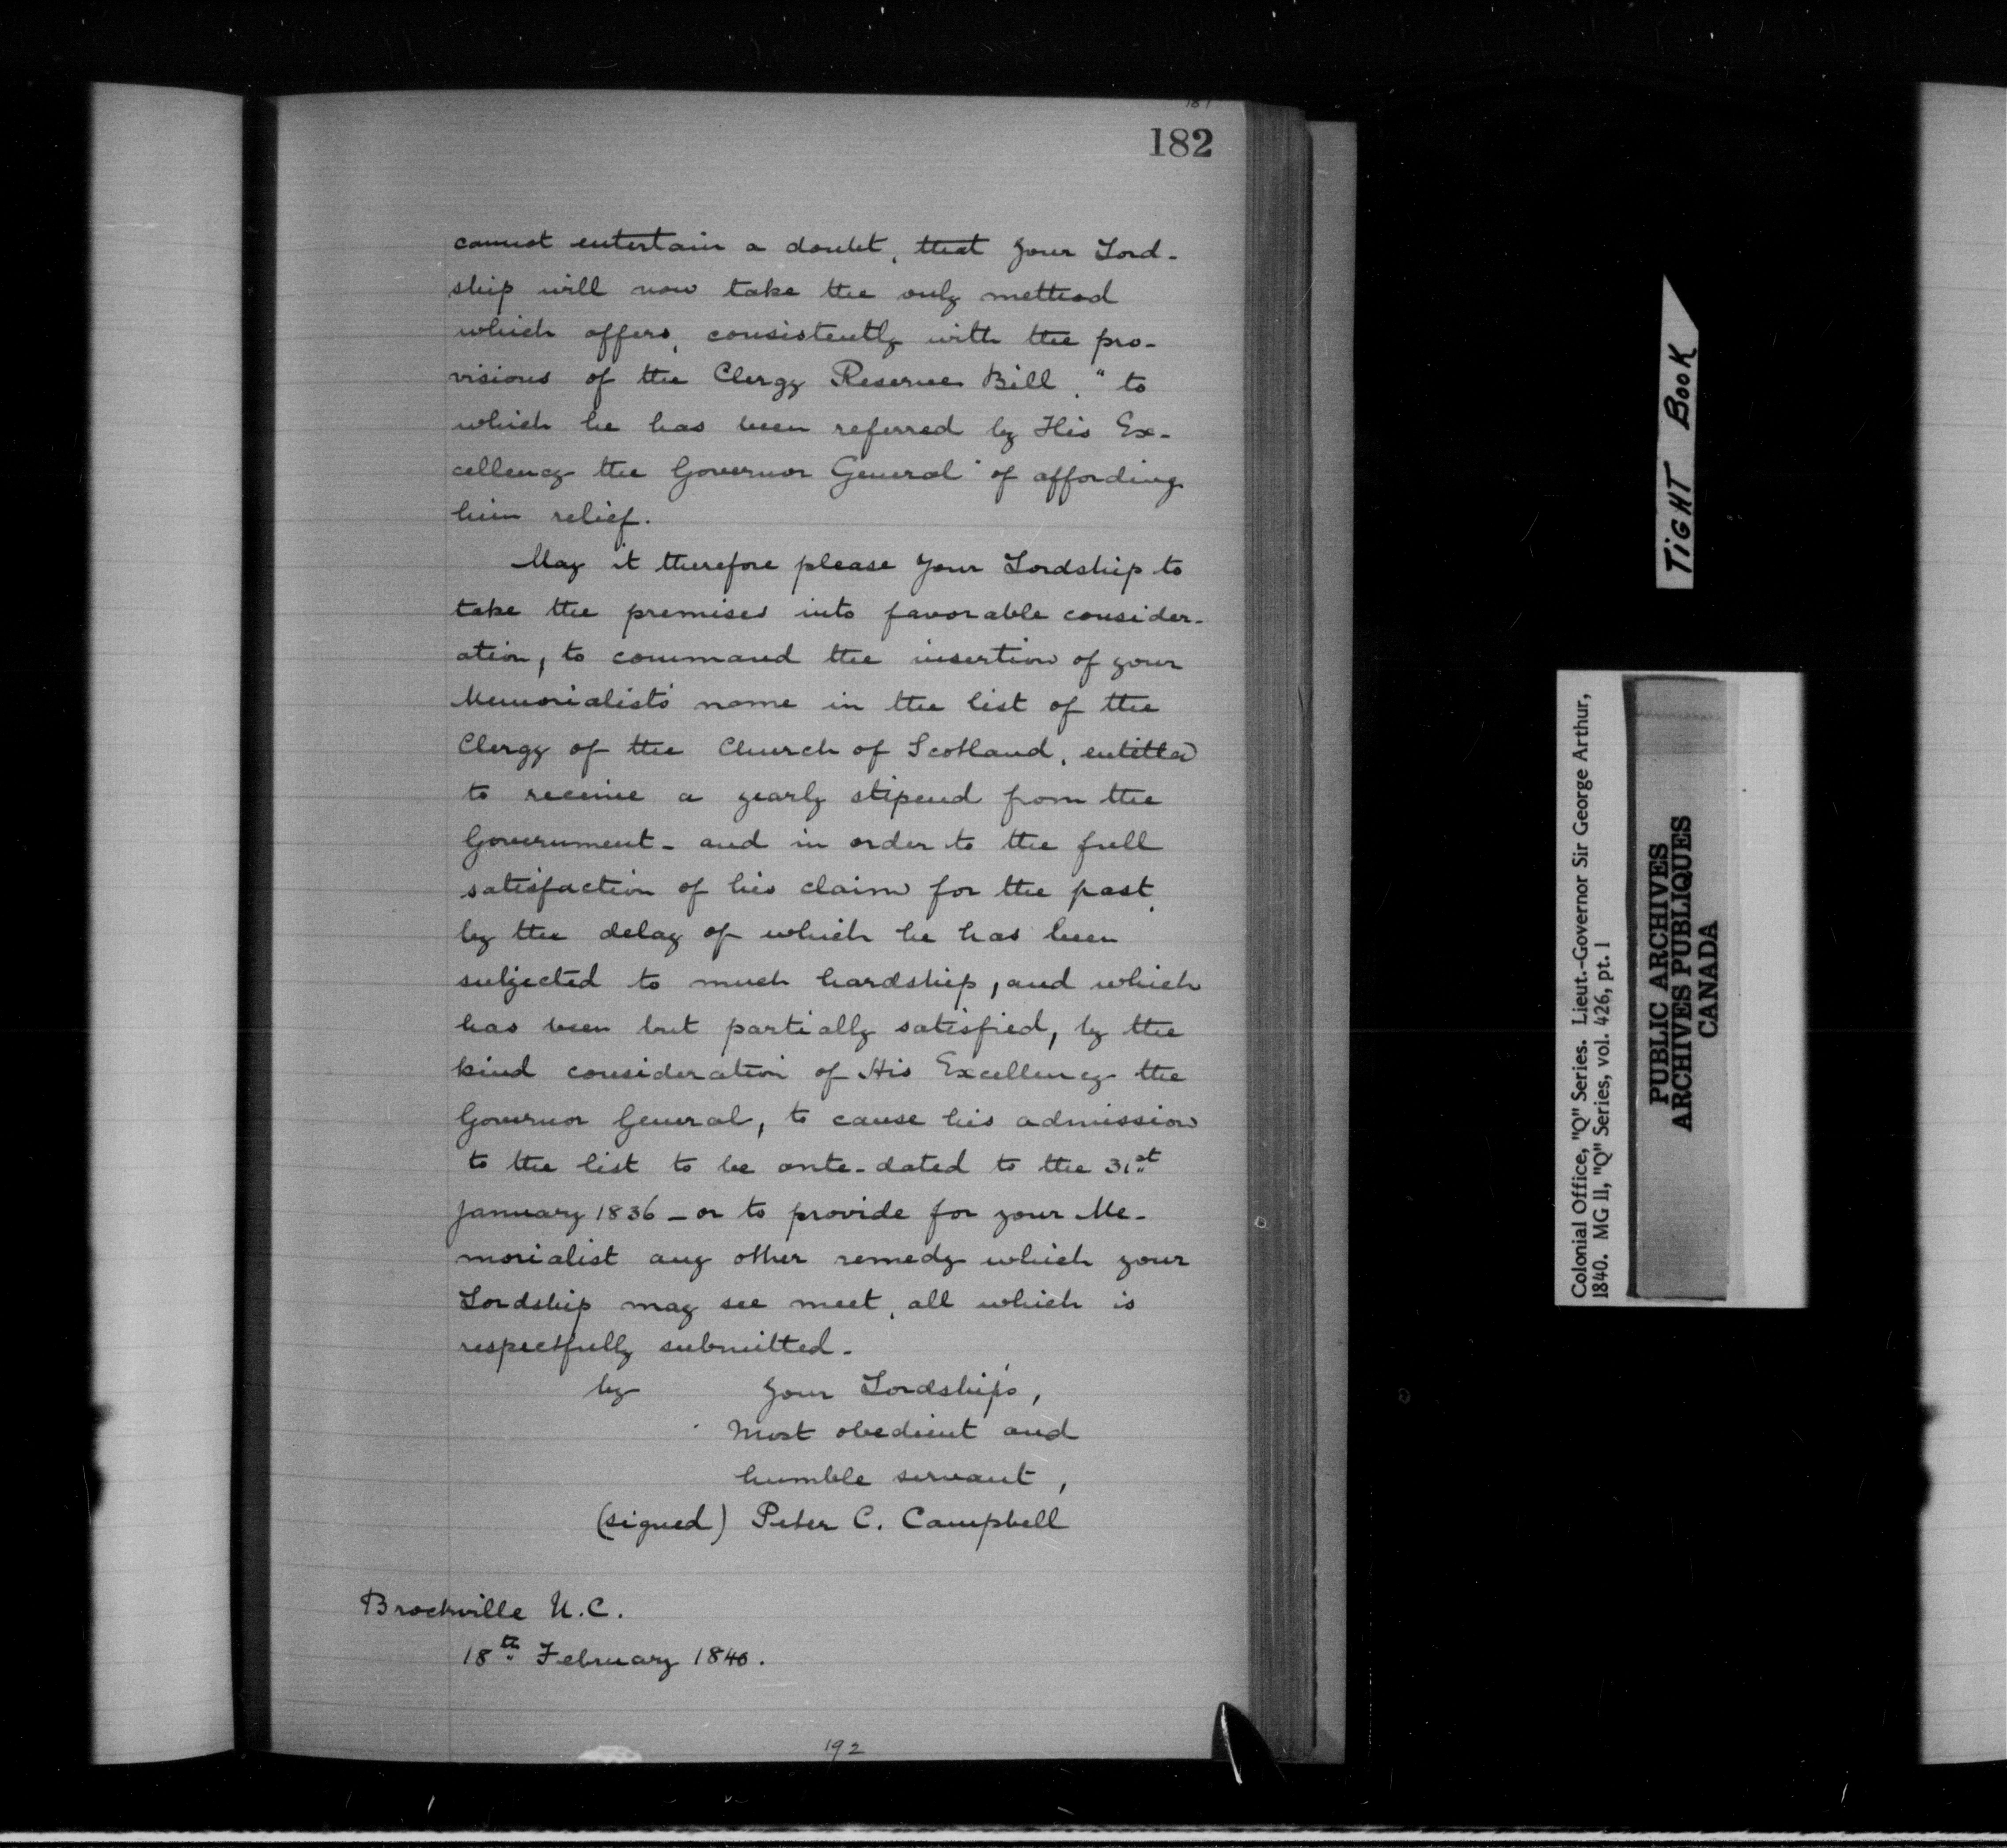 181
182
cannot entertain a doubt, that your Lord-
ship will now take the only method
which offers, consistently with the pro-
visions of the Clergy Reserve Bill, "to
which he has been referred by His Ex-
cellency the Governor General" of affording
him relief.
May it therefore please your Lordship to
take the premises into favorable consider-
ation, to command the insertion of your
Memorialist's name in the list of the
Clergy of the Church of Scotland, entitled
to receive a yearly stipend from the
Government - and in order to the full
satisfaction of his claim for the past,
by the delay of which he has been
subjected to much hardship, and which
has been but partially satisfied, by the
kind consideration of His Excellency the
Governor General, to cause his admission
to the list to be ante-dated to the 31st
January 1836 - or to provide for your Me-
morialist any other remedy which your
Lordship may see meet, all which is
respectfully submitted.
by Your Lordship's,
Most obedient and
humble servant,
(signed) Peter C. Campbell
Brockville U.C.
18th February 1840.
192
TIGHT BOOK
Colonial Office, "Q" Series. Lieut.-Governor Sir George Arthur,
1840. MG 11, "Q" Series, vol. 426, pt. 1
PUBLIC ARCHIVES
ARCHIVES PUBLIQUES
CANADA